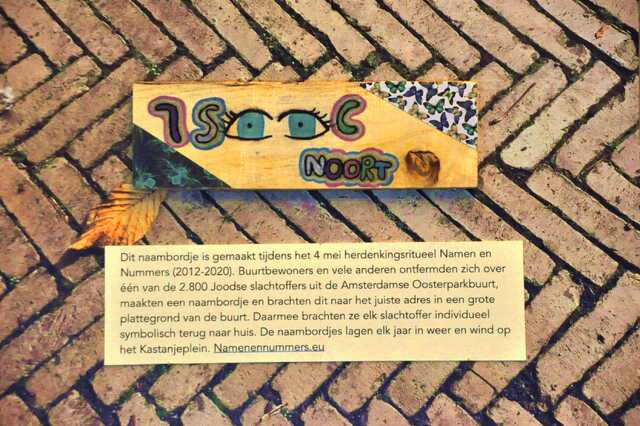 ISAAC
NOORT
Dit naambordje is gemaakt tijdens het 4 mei herdenkingsritueel Namen en
Nummers (2012-2020). Buurtbewoners en vele anderen ontfermden zich over
één van de 2.800 Joodse slachtoffers uit de Amsterdamse Oosterparkbuurt,
maakten een naambordje en brachten dit naar het juiste adres in een grote
plattegrond van de buurt. Daarmee brachten ze elk slachtoffer individueel
symbolisch terug naar huis. De naambordjes lagen elk jaar in weer en wind op
het Kastanjeplein. Namenennummers.eu